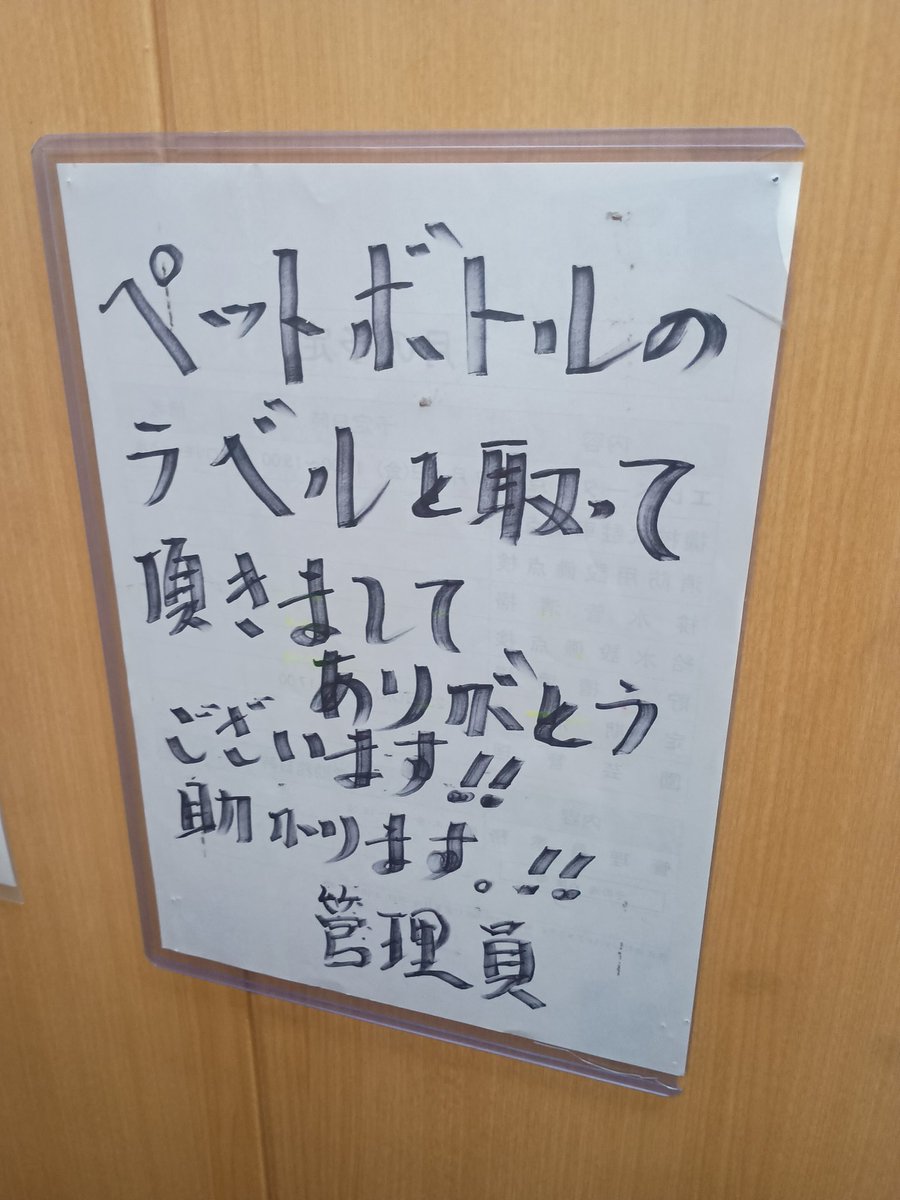 ペットボトルの
ラベルを取って
頂きまして
ありがとう
ございます!!
助かります。!!
管理員